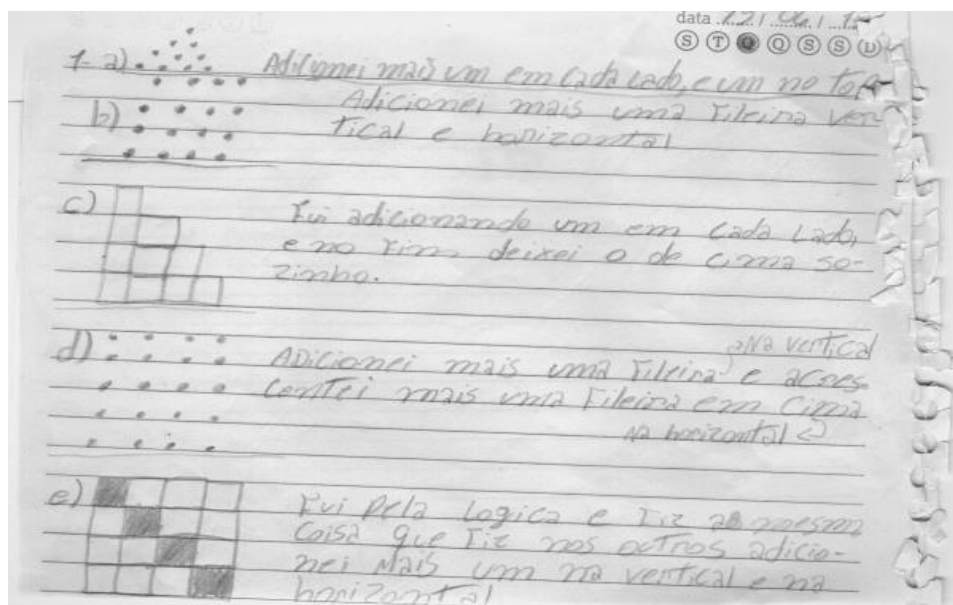 data 12/06/1
S T Q Q S S D
1- a) Adicionei mais um em cada lado, e um no topo
b) Adicionei mais uma fileira ver
tical e horizontal
c) Fui adicionando um em cada lado,
e no fim deixei o de cima so-
zinho.
Na vertical
d) Adicionei mais uma fileira e acres-
centei mais uma fileira em cima
na horizontal
e) Fui pela logica e fiz a mesma
coisa que fiz nos outros adicio-
nei mais um na vertical e na
horizontal